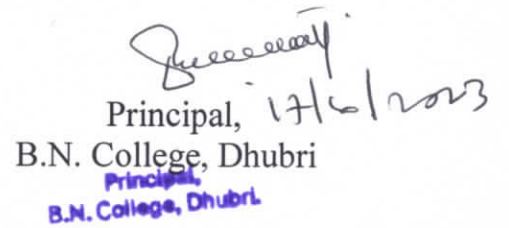 Principal, 17/6/2023
B.N. College, Dhubri
Principal,
B.N. College, Dhubri.